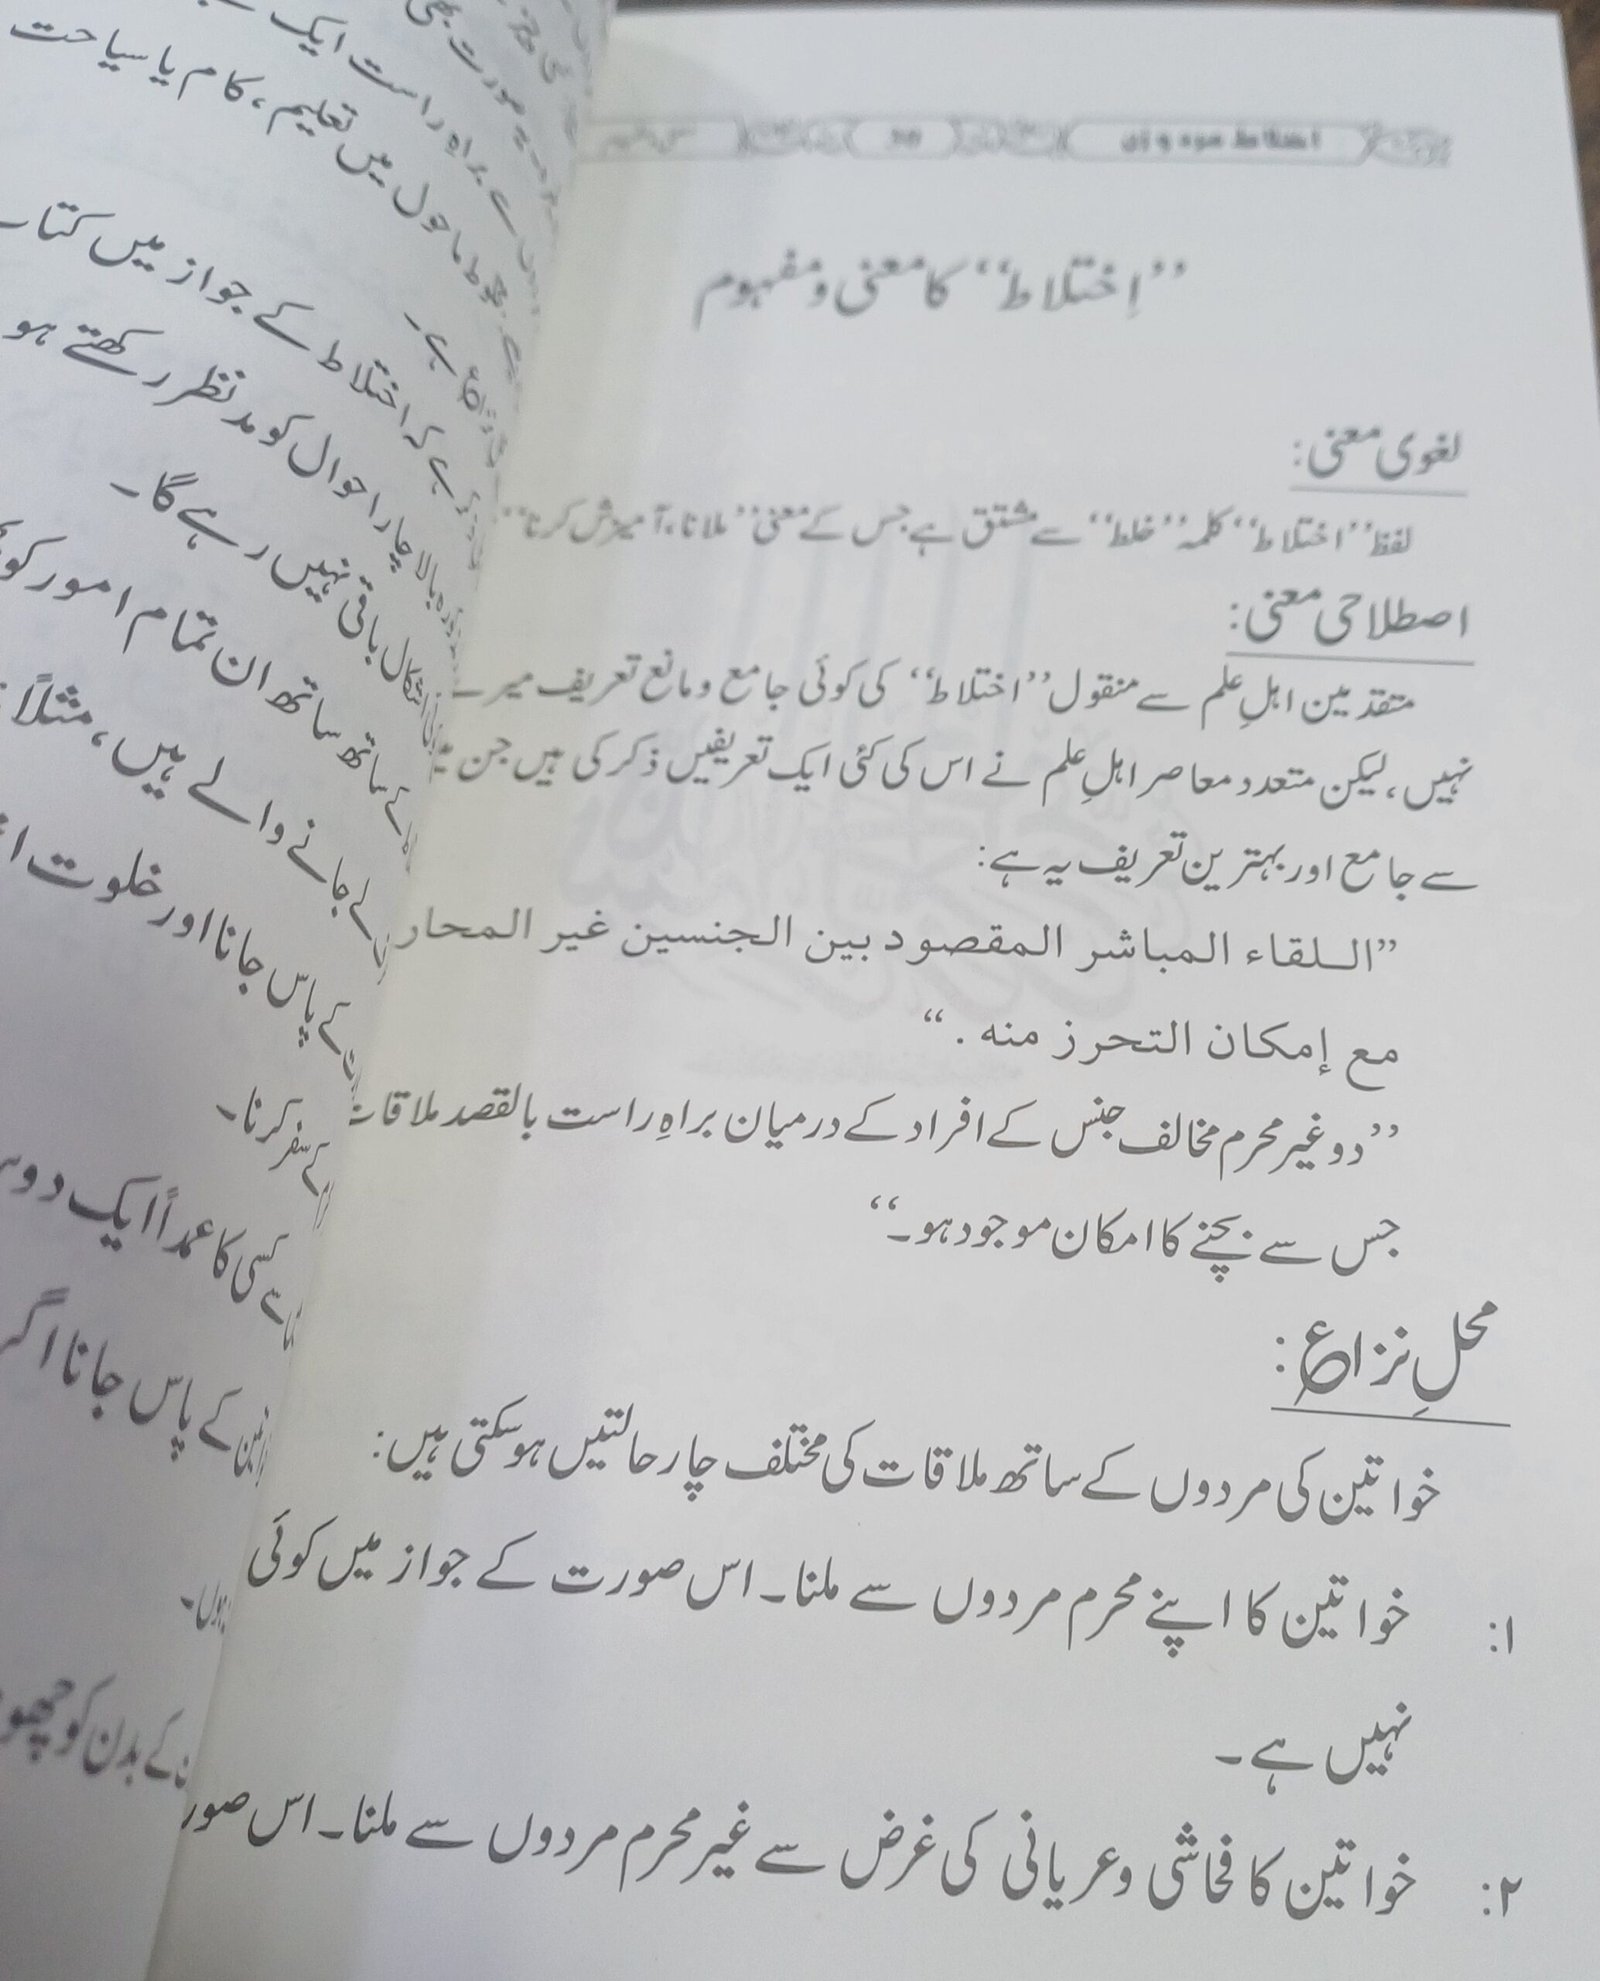 اختلاط مرد و زن
”اِختلاط“ کا معنی و مفہوم
لغوی معنی:
لفظ ”اختلاط“ کلمہ ”خلط“ سے مشتق ہے جس کے معنی ”ملانا، آمیزش کرنا“
اصطلاحی معنی:
متقدمین اہلِ علم سے منقول ”اختلاط“ کی کوئی جامع و مانع تعریف میرے
نہیں، لیکن متعدد معاصر اہلِ علم نے اس کی کئی ایک تعریفیں ذکر کی ہیں جن
سے جامع اور بہترین تعریف یہ ہے:
”اللقاء المباشر المقصود بين الجنسين غير المحار
مع إمكان التحرز منه .“
”دو غیر محرم مخالف جنس کے افراد کے درمیان براہِ راست بالقصد ملاقات
جس سے بچنے کا امکان موجود ہو۔“
محلِ نزاع:
خواتین کی مردوں کے ساتھ ملاقات کی مختلف چار حالتیں ہوسکتی ہیں:
۱: خواتین کا اپنے محرم مردوں سے ملنا۔ اس صورت کے جواز میں کوئی
نہیں ہے۔
۲: خواتین کا فحاشی و عریانی کی غرض سے غیر محرم مردوں سے ملنا۔ اس صور
براہِ راست ایک
ماحول میں تعلیم، کام یا سیاحت
ہے۔
ہے کہ اختلاط کے جواز میں کتا
بالا چار احوال کو مدنظر رکھتے ہو
اشکال باقی نہیں رہے گا۔
کے ساتھ ساتھ ان تمام امور کو
لے جانے والے ہیں، مثلاً
کے پاس جانا اور خلوت ا
کے سفر کرنا۔
سے کسی کا عمداً ایک دوسر
کے پاس جانا اگر
ہوں۔
کے بدن کو چھو